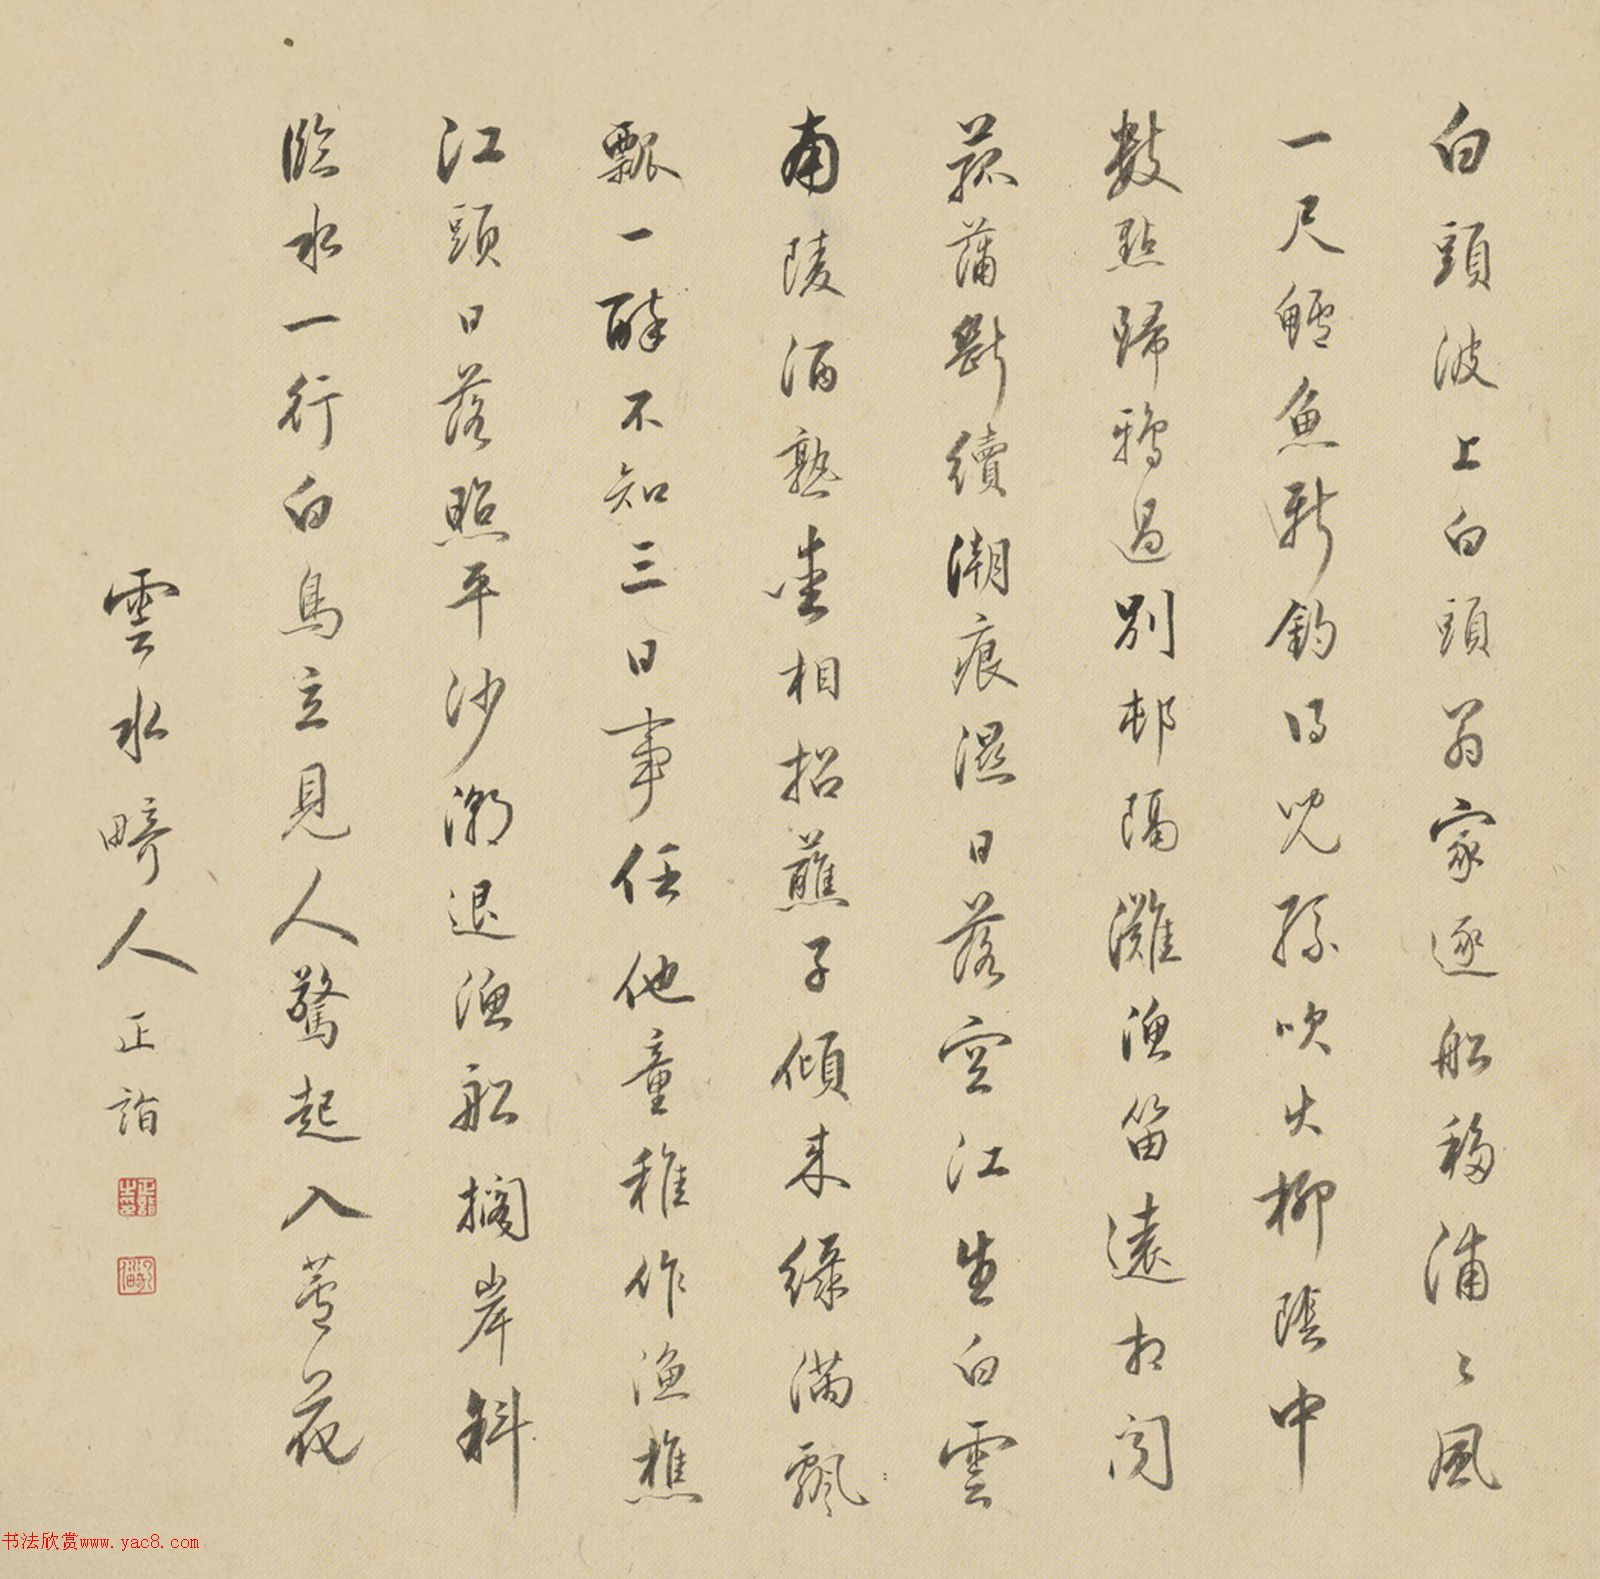 白頭波上白頭翁家逐船移浦〻風
一尺鱸魚新釣得兒孫吹火柳陰中
數點歸鴉過別邨隔灘漁笛遠相聞
菰蒲斷續潮痕濕日落空江生白雲
南陵酒熟相招蘸子傾來綠滿飄
瓢一醉不知三日事任他童稚作漁樵
江頭日落照平沙潮退漁船擱岸斜
臨水一行白鳥立見人驚起入蘆花
雲水畸人正詣
书法欣赏www.yac8.com